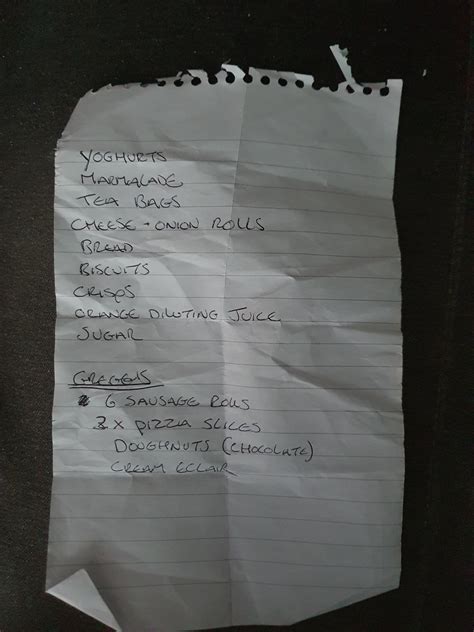 YOGHURTS
MARMALADE
TEA BAGS
CHEESE + ONION ROLLS
BREAD
BISCUITS
CRISPS
ORANGE DILUTING JUICE
SUGAR
GREGGS
6 SAUSAGE ROLLS
3 x PIZZA SLICES
DOUGHNUTS (CHOCOLATE)
CREAM ECLAIR